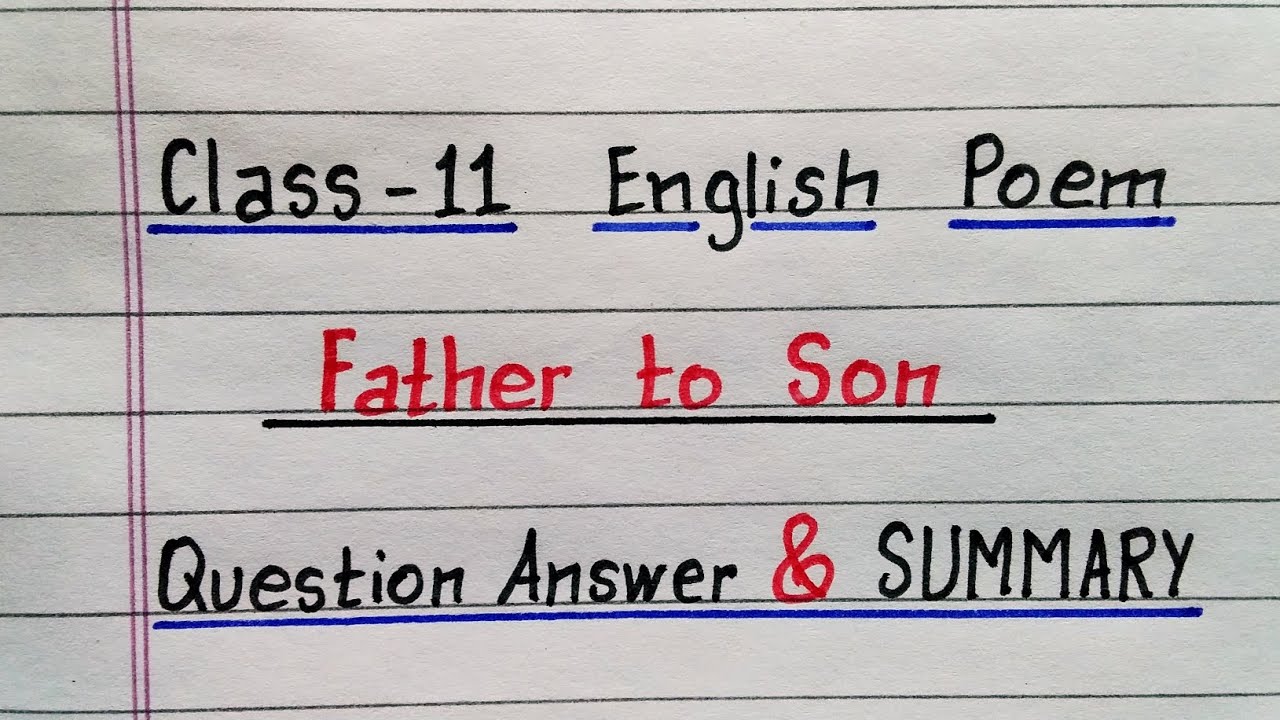 Class-11 English Poem
Father to Son
Question Answer & SUMMARY